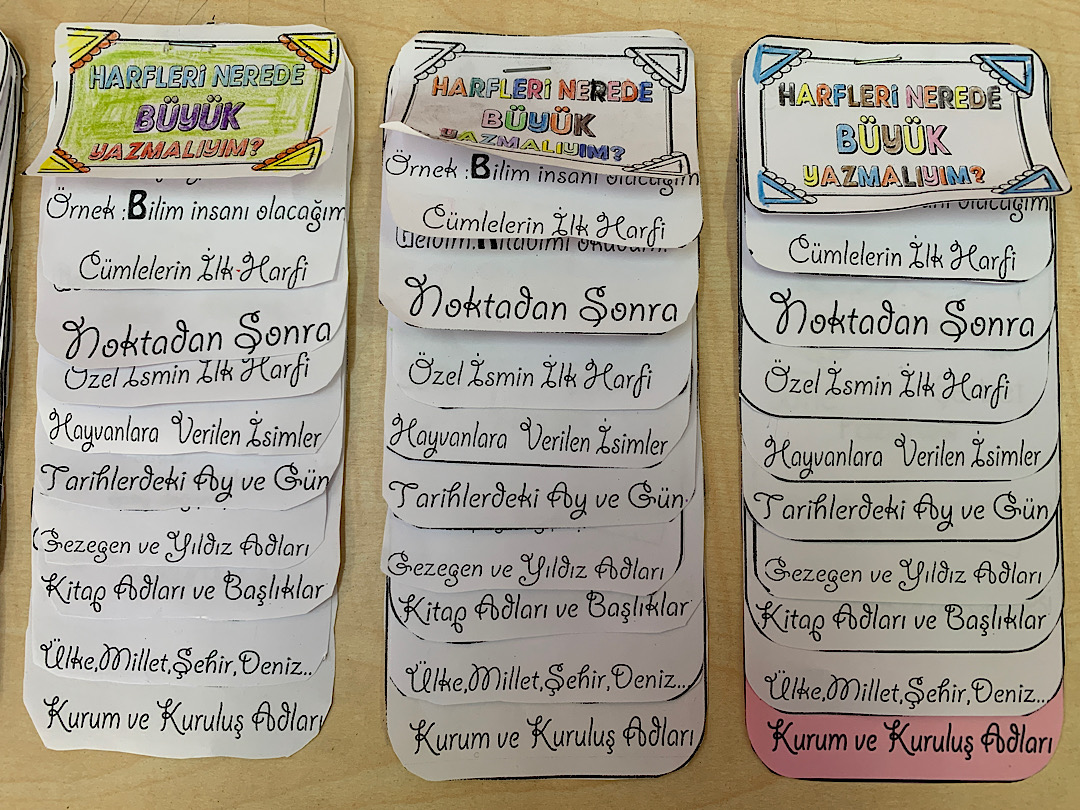 HARFLERİ NEREDE
BÜYÜK
YAZMALIYIM?
Örnek :Bilim insanı olacağım
Cümlelerin İlk Harfi
Noktadan Sonra
Özel İsmin İlk Harfi
Hayvanlara Verilen İsimler
Tarihlerdeki Ay ve Gün
Gezegen ve Yıldız Adları
Kitap Adları ve Başlıklar
Ülke,Millet,Şehir,Deniz..
Kurum ve Kuruluş Adları
HARFLERİ NEREDE
BÜYÜK
YAZMALIYIM?
Örnek :Bilim insanı olacağım
Cümlelerin İlk Harfi
Geldim.Kitabımı okudum
Noktadan Sonra
Özel İsmin İlk Harfi
Hayvanlara Verilen İsimler
Tarihlerdeki Ay ve Gün
Gezegen ve Yıldız Adları
Kitap Adları ve Başlıklar
Ülke,Millet,Şehir,Deniz...
Kurum ve Kuruluş Adları
HARFLERİ NEREDE
BÜYÜK
YAZMALIYIM?
olacağım
Cümlelerin İlk Harfi
Noktadan Sonra
Özel İsmin İlk Harfi
Hayvanlara Verilen İsimler
Tarihlerdeki Ay ve Gün
Gezegen ve Yıldız Adları
Kitap Adları ve Başlıklar
Ülke,Millet,Şehir,Deniz...
Kurum ve Kuruluş Adları